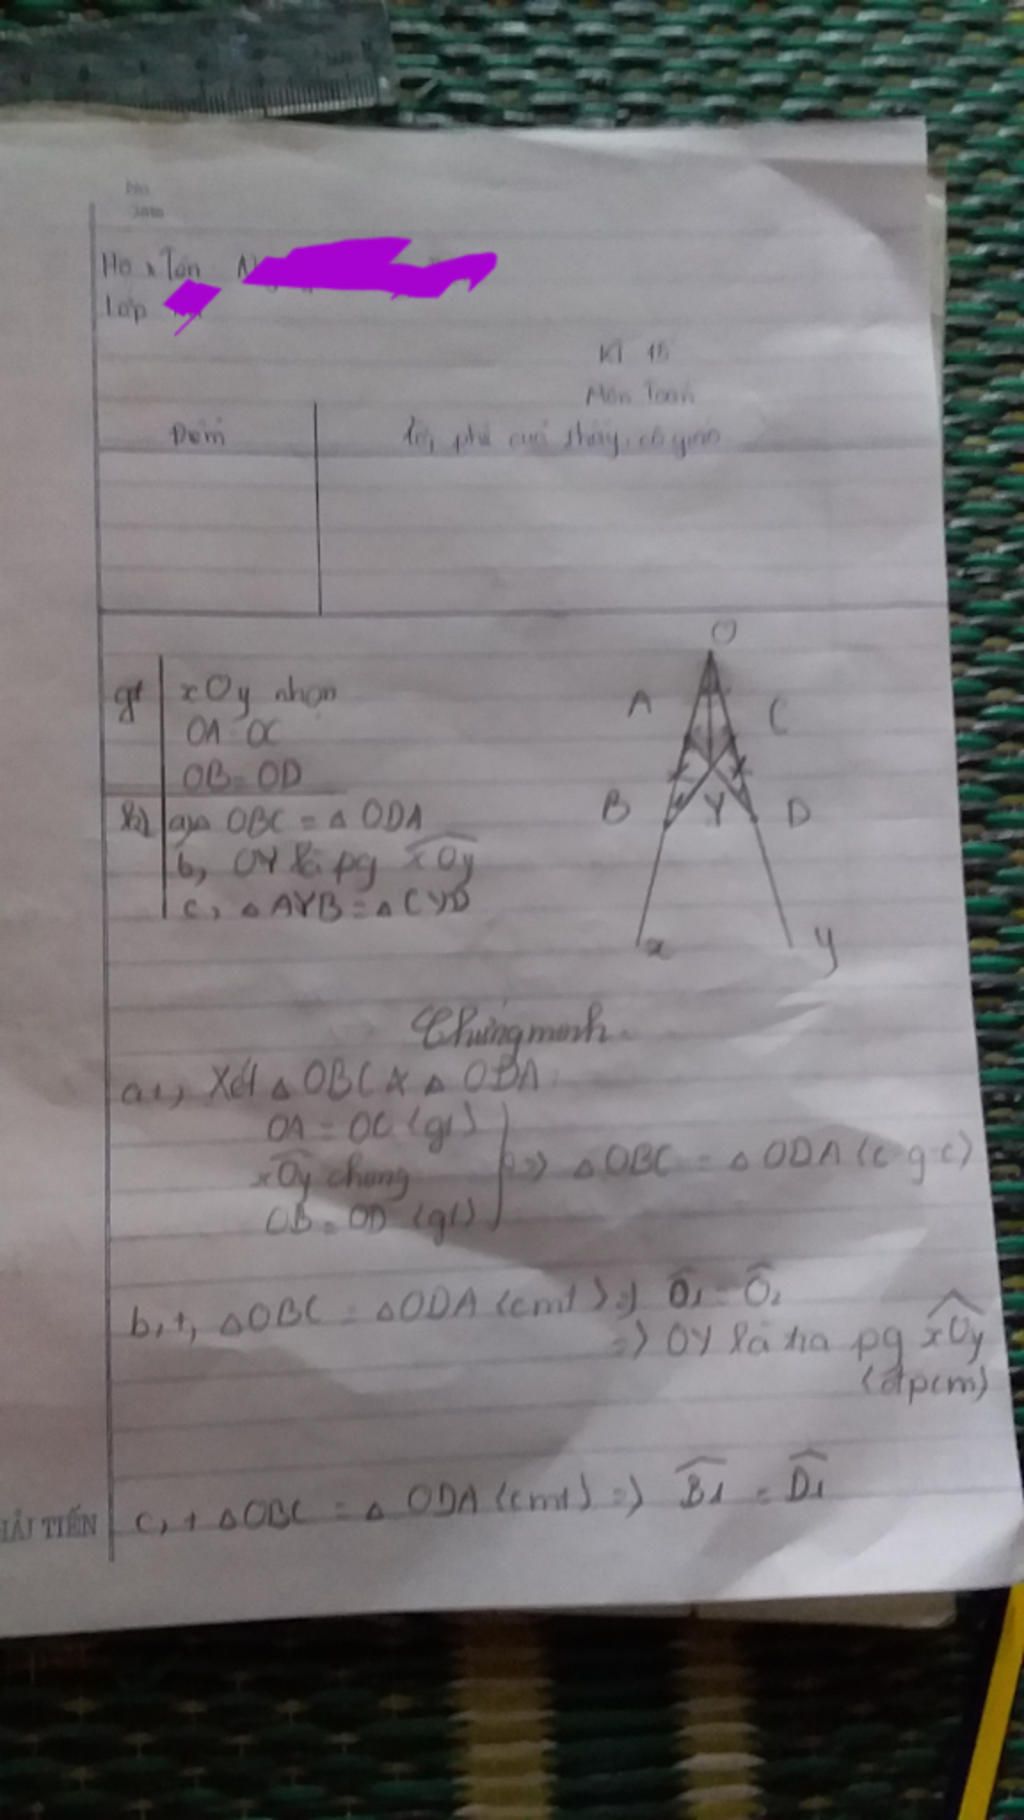 Họ & Tên
Lớp
KT 15
Môn Toán
Điểm
Lời phê của thầy, cô giáo
O
A
C
B
Y
D
x
y
gt
xOy nhọn
OA OC
OB = OD
kl
a, △ OBC = △ ODA
b, OY là pg xOy
c, △ AYB = △ CYD
Chứng minh
a +, Xét △ OBC & △ ODA
OA = OC (gt)
xOy chung
OB = OD (gt)
=> △ OBC = △ ODA (c g c)
b, +, △OBC = △ODA (cmt) => O1 = O2
=> OY là tia pg xOy
(đpcm)
c, + △OBC = △ ODA (cmt) => B1 = D1
HẢI TIẾN